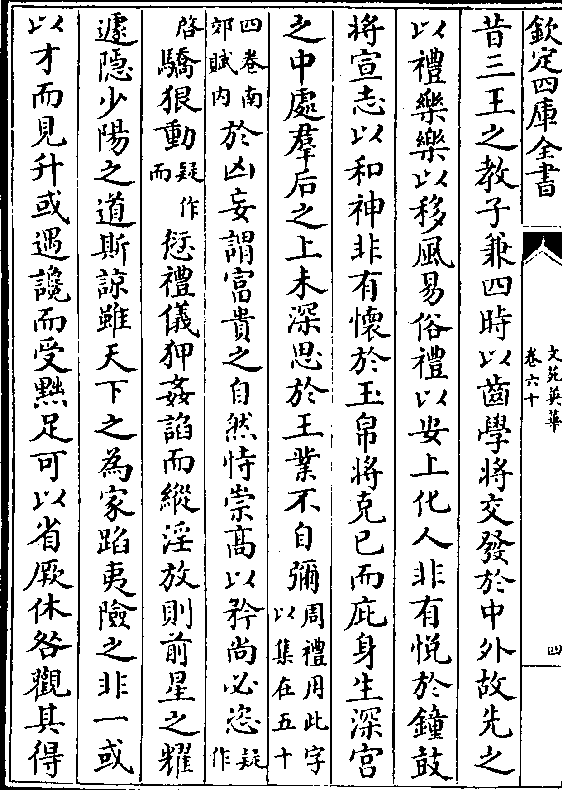 欽定四庫全書
文苑英華
卷六十
四
昔三王之教子兼四時以齒學將交發於中外故先之
以禮樂樂以移風易俗禮以安上化人非有悅於鐘鼓
將宣志以和神非有懷於玉帛將克已而庇身生深宮
之中處羣后之上未深思於王業不自彌周禮用此字以集在五十
四卷南郊賦內於凶妄謂富貴之自然恃崇高以矜尚必恣疑作
啓驕狠動疑作而愆禮儀狎姦諂而縱淫放則前星之耀
遽隱少陽之道斯諒雖天下之為家蹈夷險之非一或
以才而見升或遇讒而受黜足可以省厥休咎觀其得